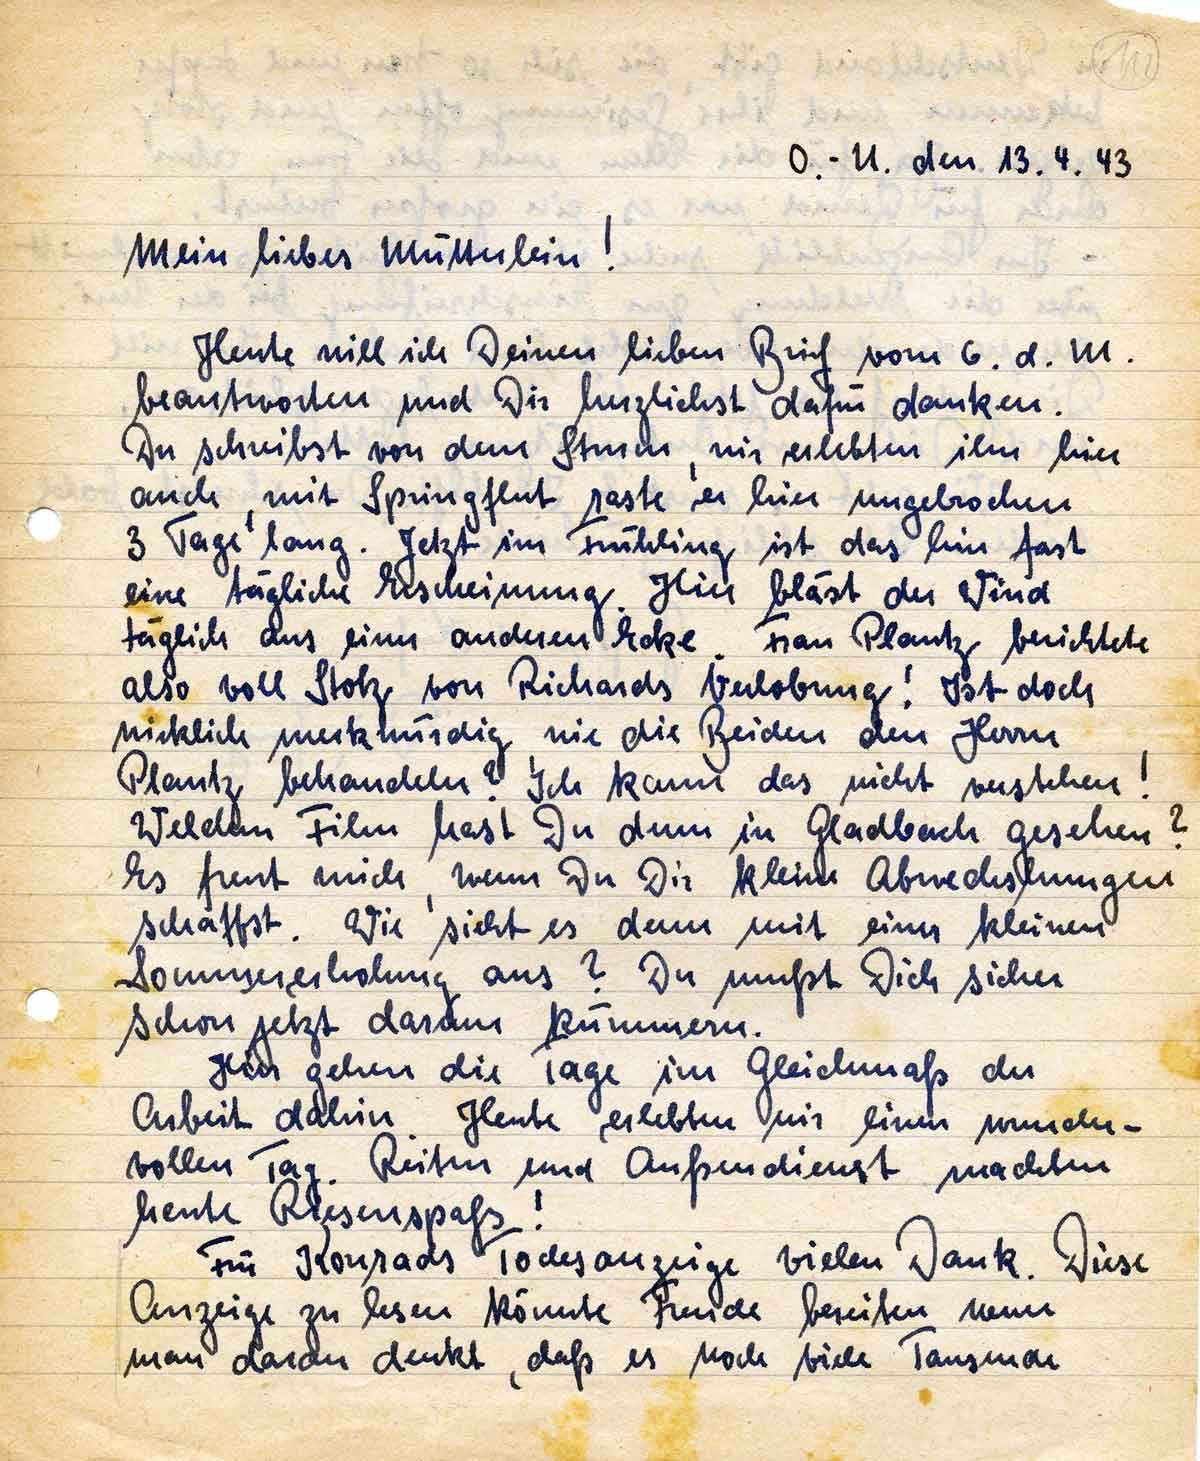 O.-U. den 13.4.43
Mein liebes Mütterlein!
Heute will ich Deinen lieben Brief vom 6. d. M.
beantworten und Dir herzlichst dafür danken.
Du schreibst von dem Sturm, wir erlebten ihn hier
auch, mit Springflut raste er hier ungebrochen
3 Tage lang. Jetzt im Frühling ist das hier fast
eine tägliche Erscheinung. Hier bläst der Wind
täglich aus einer anderen Ecke. Frau Plantz berichtete
also voll Stolz von Richards Verlobung! Ist doch
wirklich merkwürdig wie die Beiden den Herrn
Plantz behandeln? Ich kann das nicht verstehen!
Welchen Film hast Du denn in Gladbach gesehen?
Es freut mich, wenn Du Dir kleine Abwechslungen
schaffst. Wie sieht es denn mit einer kleinen
Sommererholung aus? Du mußt Dich sicher
schon jetzt darum kümmern.
Hier gehen die Tage im Gleichmaß der
Arbeit dahin. Heute erlebten wir einen wunder-
vollen Tag. Reiten und Außendienst machten
heute Riesenspaß!
Für Konrads Todesanzeige vielen Dank. Diese
Anzeige zu lesen könnte Freude bereiten wenn
man daran denkt, daß es noch viele Tausende